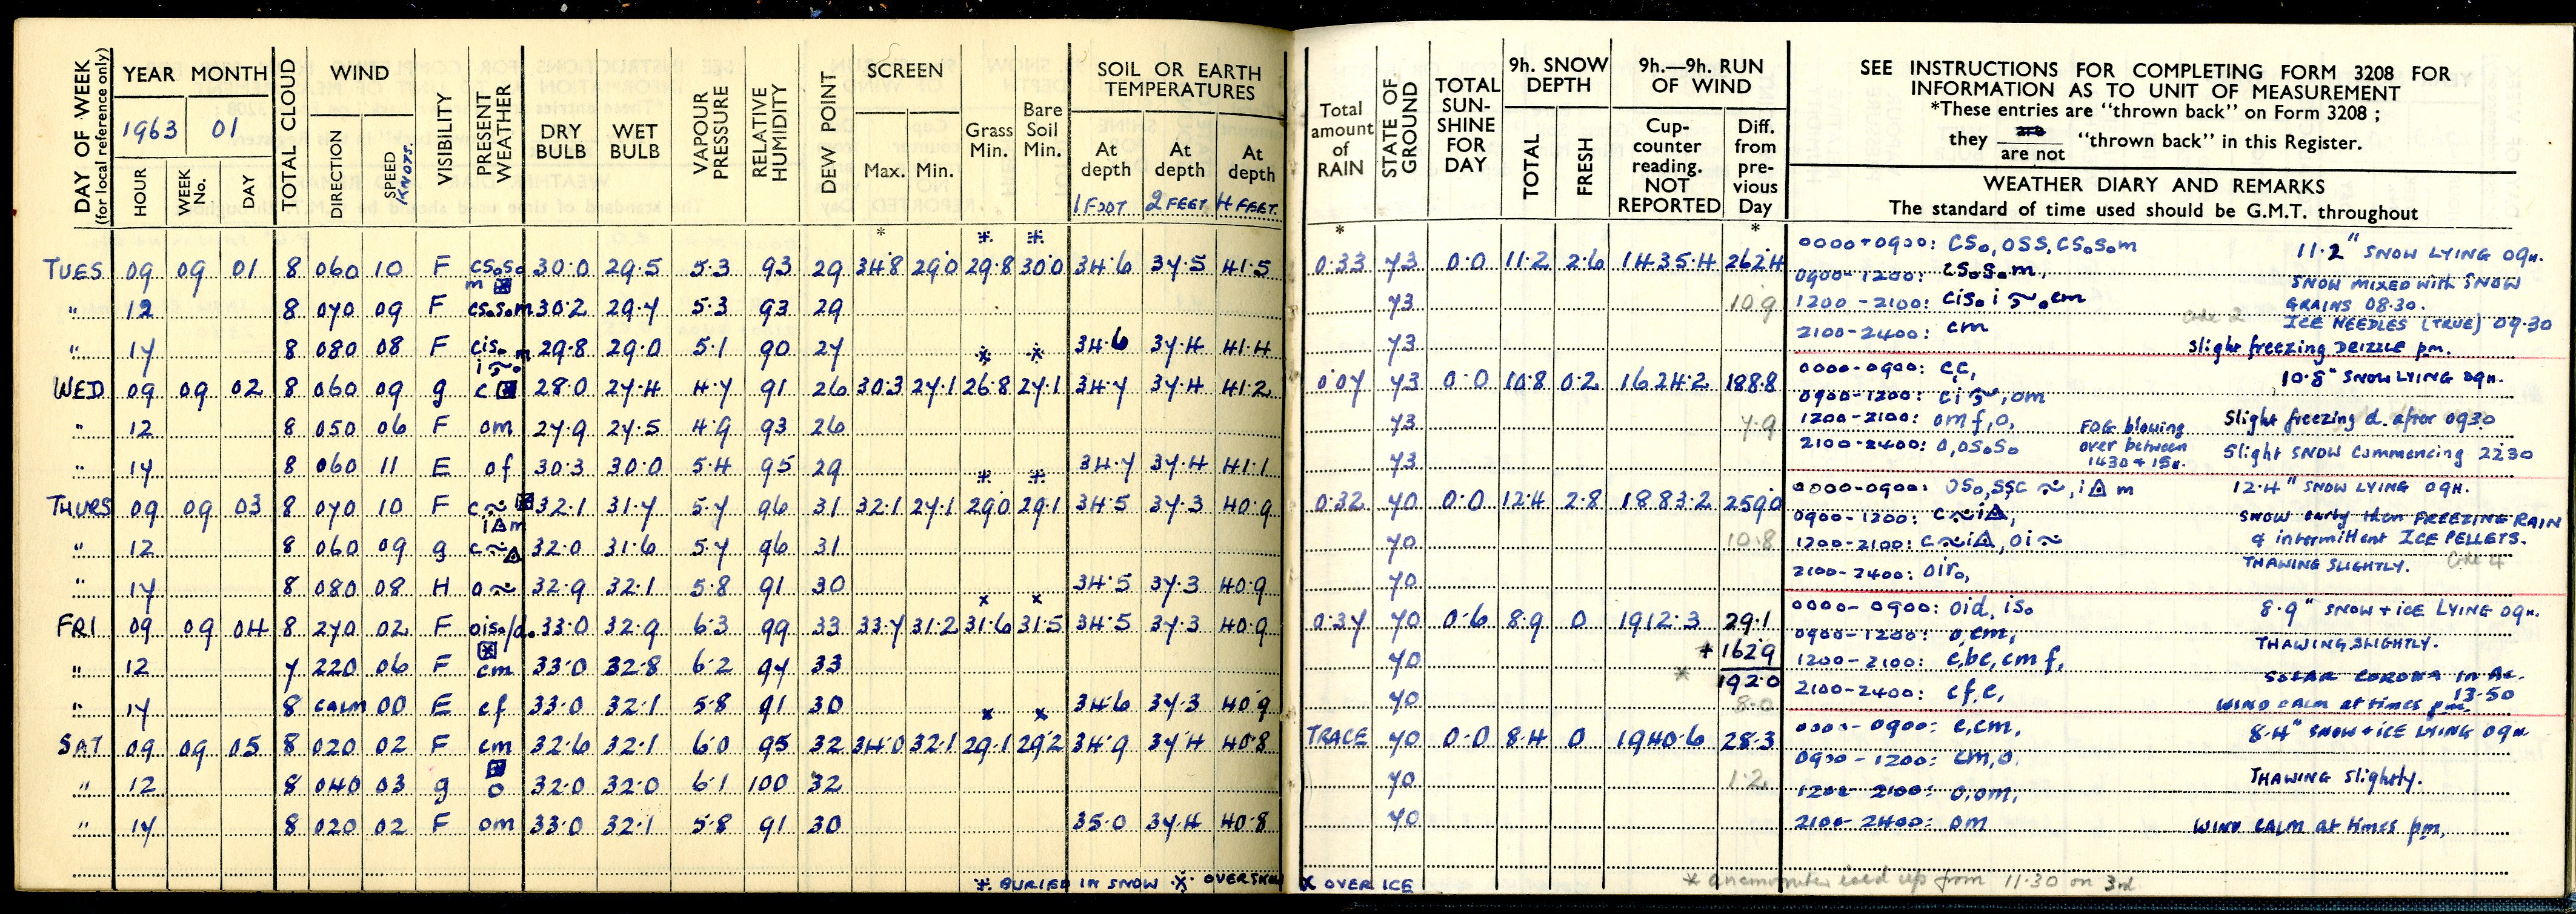 DAY OF WEEK (for local reference only)
YEAR MONTH
1963 01
HOUR WEEK No. DAY
TOTAL CLOUD
WIND
DIRECTION SPEED KNOTS.
VISIBILITY
PRESENT WEATHER
DRY BULB
WET BULB
VAPOUR PRESSURE
RELATIVE HUMIDITY
DEW POINT
SCREEN
Max. Min.
Grass Min.
Bare Soil Min.
SOIL OR EARTH TEMPERATURES
At depth At depth At depth
1 FOOT 2 FEET 4 FEET
TUES 09 09 01 8 060 10 F cs₀s₀ m 30.0 29.5 5.3 93 29 34.8 29.0 29.8 30.0 34.6 37.5 41.5
" 12 8 070 09 F cs₀s₀m 30.2 29.7 5.3 93 29
" 17 8 080 08 F cis₀ m 29.8 29.0 5.1 90 27 34.6 37.4 41.4
WED 09 09 02 8 060 09 g c 28.0 27.4 4.7 91 26 30.3 27.1 26.8 27.1 34.7 37.4 41.2
" 12 8 050 06 F om 27.9 27.5 4.9 93 26
" 17 8 060 11 E of 30.3 30.0 5.4 95 29 34.7 37.4 41.1
THURS 09 09 03 8 070 10 F c i△m 32.1 31.7 5.7 96 31 32.1 27.1 29.0 29.1 34.5 37.3 40.9
" 12 8 060 09 g c 32.0 31.6 5.7 96 31
" 17 8 080 08 H o 32.9 32.1 5.8 91 30 34.5 37.3 40.9
FRI 09 09 04 8 270 02 F ois₀/d₀ 33.0 32.9 6.3 99 33 33.7 31.2 31.6 31.5 34.5 37.3 40.9
" 12 7 220 06 F cm 33.0 32.8 6.2 97 33
" 17 8 CALM 00 E cf 33.0 32.1 5.8 91 30 34.6 37.3 40.9
SAT 09 09 05 8 020 02 F cm 32.6 32.1 6.0 95 32 34.0 32.1 29.1 29.2 34.9 37.4 40.8
" 12 8 040 03 g o 32.0 32.0 6.1 100 32
" 17 8 020 02 F om 33.0 32.1 5.8 91 30 35.0 37.4 40.8
BURIED IN SNOW OVER SNOW
Total amount of RAIN
STATE OF GROUND
TOTAL SUN- SHINE FOR DAY
9h. SNOW DEPTH
TOTAL FRESH
9h.—9h. RUN OF WIND
Cup- counter reading. NOT REPORTED
Diff. from pre- vious Day
SEE INSTRUCTIONS FOR COMPLETING FORM 3208 FOR
INFORMATION AS TO UNIT OF MEASUREMENT
*These entries are "thrown back" on Form 3208 ;
they are / are not "thrown back" in this Register.
WEATHER DIARY AND REMARKS
The standard of time used should be G.M.T. throughout
0.33 73 0.0 11.2 2.6 1435.4 262.4
73 10.9
73
0000-0900: cs₀, oss, cs₀s₀m 11.2" SNOW LYING 09H.
0900-1200: cs₀s₀m,
SNOW MIXED with SNOW
1200-2100: cis₀ i ₀cm GRAINS 08.30.
2100-2400: cm ICE NEEDLES (TRUE) 09.30
slight freezing DRIZZLE pm.
0.07 73 0.0 10.8 0.2 1624.2 188.8
73 7.9
73
0000-0900: c,c, 10.8" SNOW LYING 09H.
0900-1200: ci, om
1200-2100: omf,o, FOG blowing over between 1430 + 15H. Slight freezing d. after 0930
2100-2400: o,os₀s₀ Slight SNOW commencing 2230
0.32 70 0.0 12.4 2.8 1883.2 259.0
70 10.8
70
0000-0900: os₀,ssc, i△ m 12.4" SNOW LYING 09H.
0900-1200: c i△, SNOW early then FREEZING RAIN
1200-2100: c i△, oi & intermittent ICE PELLETS.
2100-2400: oir₀, THAWING SLIGHTLY.
0.37 70 0.6 8.9 0 1912.3 29.1
70 + 162.9
192.0
70 8.0
0000-0900: oid, is₀ 8.9" SNOW + ICE LYING 09H.
0900-1200: o,cm, THAWING SLIGHTLY.
1200-2100: c,bc,cm f, SOLAR CORONA IN Ac. 13.50
2100-2400: cf,c, WIND CALM at times pm.
TRACE 70 0.0 8.4 0 1940.6 28.3
70 1.2
70
0000-0900: c,cm, 8.4" SNOW + ICE LYING 09H.
0900-1200: cm,o,
THAWING Slightly.
1200-2100: o,om,
2100-2400: om WIND CALM at times pm,
X OVER ICE
* anemometer iced up from 11.30 on 3rd